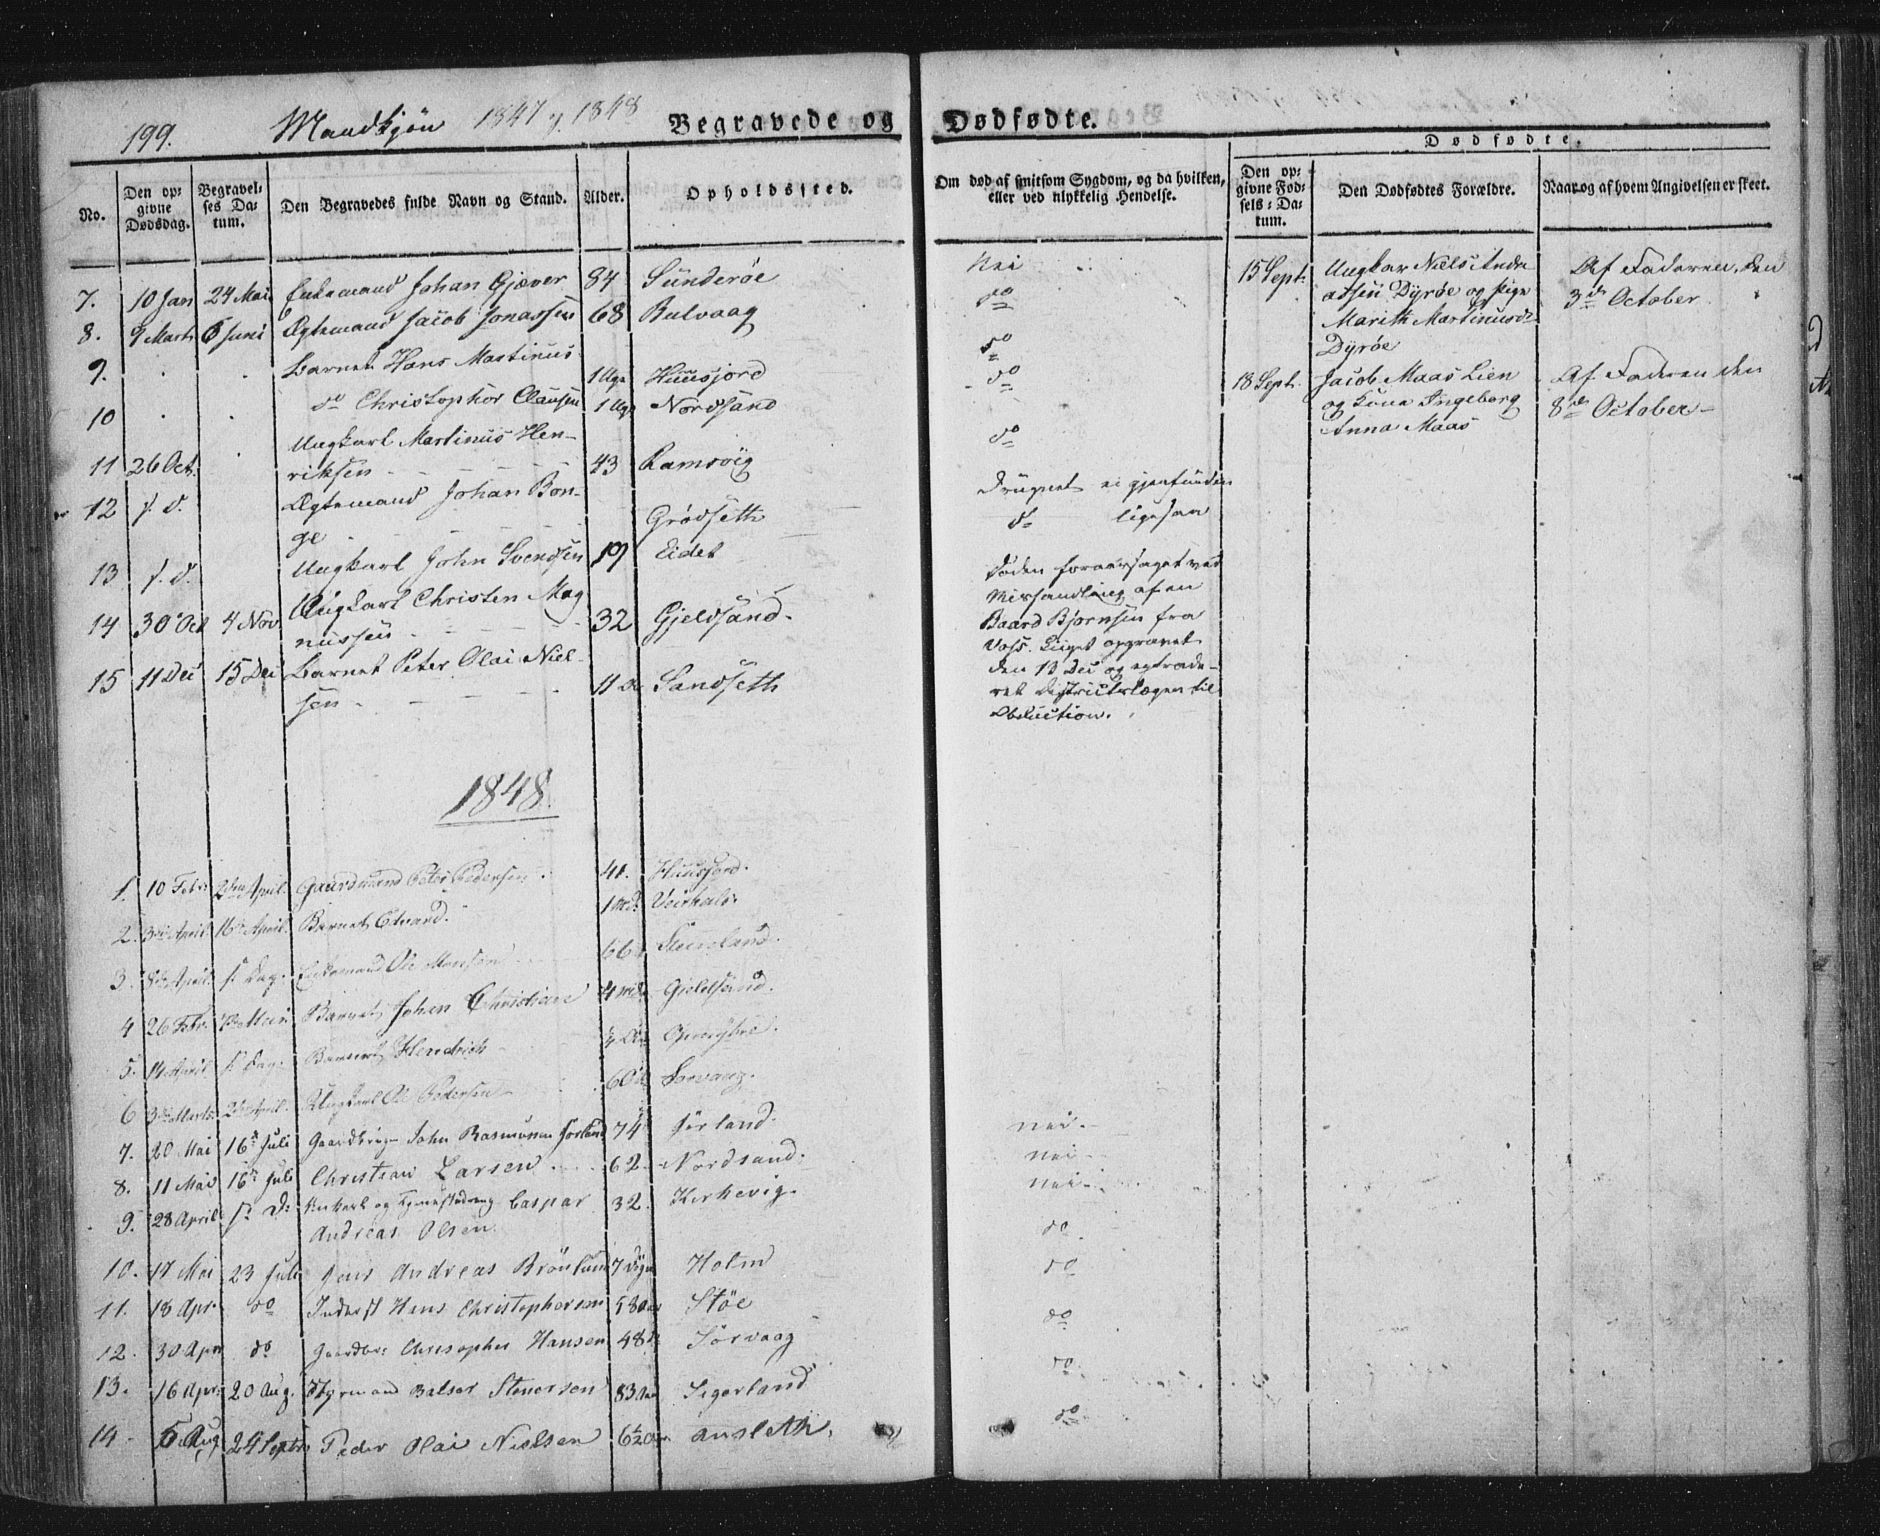 199. Mandkjøn 1847 & 1848 Begravede og Dødfødte.
Dødfødte.
No.
Den op-
givne
Dødsdag.
Begravel-
ses Da-
tum.
Den Begravedes fulde Navn og Stand.
Alder.
Opholdssted.
Om død af smitsom Sygdom, og da hvilken,
eller ved ulykkelig Hendelse.
Den op-
givne Fød-
sels-Da-
tum.
Den Dødfødtes Forældre.
Naar og af hvem Angivelsen er skeet.
7. 10 Jan 24 Mai Enkemand Johan Gjæver 84 Sünderöe Nei
8. 9 Marts 6 Juni Ægtemand Jacob Jonassen 68 Bulvaag do
9. Barnet Hans Martinus 1 Uge Huusjord do
10 do Christopher Clausen 1 Uge Nordsand do
11 26 Oct. Ungkarl Martinus Hen-
riksen 43 Ramsvig do
12 s. d. Ægtemand Johan Bon-
ge Grödseth Drugnet ei gjenfunden
13 s. d. Ungkarl John Svendsen 19 Eidet do ligesaa
14 30 Oct 4 Nov Ungkarl Christen Mag
nussen 32 Gjeldsand. Døden foraarsaget ved
Mishandling af en
Baard Bjørnsen fra
Voss. Liiget opgravet
den 13 Dec og extrade-
ret Districtslægen til
Obduction.
15 11 Dec 15 Dec Barnet Peter Olai Niel-
sen 11 Sandseth
15 Sept. Ungkar Niels Andre
assen Dyröe og pige
Marith Martinusd
Dyröe
Af Faderen, den
3de October
18 Sept. Jacob Maas Lien
og kone Ingeborg
Anna Maas
Af Faderen den
8de October
1848.
1. 10 Febr. April. Gaardmand Peter Pedersen. 41. Huusjord.
2. 3die April. 16de April. Barnet Edvard. 1 Md.
3. 8de April. s. Dag. Enkemand Ole 66
4 26 Febr. Mai. Barnet Johan Christian 4 Md. Gjeldsand.
5. 14 April s. Dag. Barnet Hendrik
6 3die Marts April. Ungkarl Ole Pedersen 60 Sorvaag.
7. 20 Mai 16de Juli John Rasmussen Jorland 74 Jorland. nei.
8. 11 Mai 16de Juli Christian Larsen 62 Nordsand. nei
9. 28 April s. D. Caspar
Andreas Olsen. 32. Kirkevig. nei
10. 17 Mai 23 Juli Jens Andreas Brönlund 7 Dage Holm do
11. 18 Apr. do Inderst Hans Christophersen 58 Aar Stöe do
12. 30 Apr do Gaardbr. Christopher Hansen 48 Sörvaag do
13. 16 Apr. 20 Aug. Styrmand Balser Stenersen 83 Aar do
14 5 Aug 24 Septbr Peder Olai Nielsen do